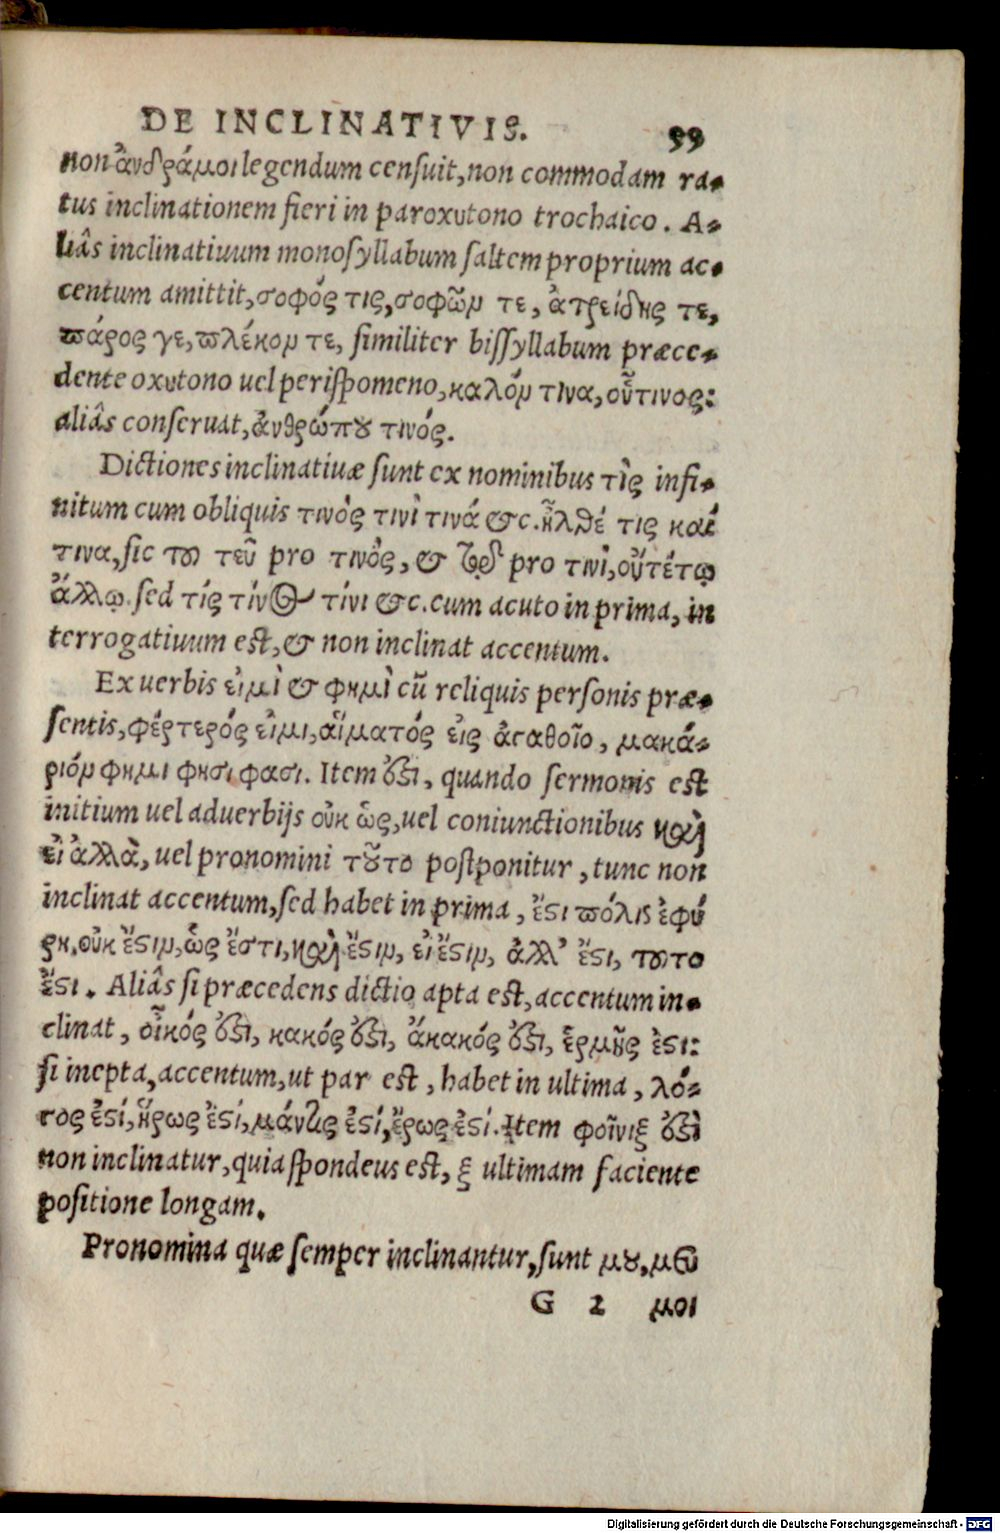 DE INCLINATIVIS. 99
non ἄνδράμοι legendum censuit, non commodam ra-
tus inclinationem fieri in paroxutono trochaico. A-
liâs inclinatiuum monosyllabum saltem proprium ac-
centum amittit, σοφός τις, σοφῶν τε, ἀτρείδης τε,
πάρος γε, πλέκον τε, similiter bissyllabum præce-
dente oxutono uel perispomeno, καλόν τινα, οὗτινος:
aliâs conseruat, ἀνθρώπου τινός.
Dictiones inclinatiuæ sunt ex nominibus τὶς infi-
nitum cum obliquis τινὸς τινὶ τινά &c. ἦλθέ τις καί
τινα, sic του τεῦ pro τινὸς, & τῳ pro τινὶ, οὔτέτῳ
ἄλλῳ. sed τίς τίνος τίνι &c. cum acuto in prima, in
terrogatiuum est, & non inclinat accentum.
Ex uerbis εἰμὶ & φημὶ cū reliquis personis præ-
sentis, φέρτερός εἰμι, αἵματός εἰς ἀγαθοῖο, μακά-
ριόν φημι φησι φασι. Item ἐστι, quando sermonis est
initium uel aduerbijs οὐκ ὡς, uel coniunctionibus καὶ
εἰ ἀλλὰ, uel pronomini τοῦτο postponitur, tunc non
inclinat accentum, sed habet in prima, ἔστι πόλις ἐφύ
ρη, οὐκ ἔστιν, ὡς ἔστι, καὶ ἔστιν, εἰ ἔστιν, ἀλλ’ ἔστι, τουτο
ἔστι. Aliâs si præcedens dictio apta est, accentum in-
clinat, οἶκός ἐστι, κακός ἐστι, ἄκακός ἐστι, ἑρμῆς ἐστι:
si inepta, accentum, ut par est, habet in ultima, λό-
γος ἐστί, ἥρως ἐστί, μάντις ἐστί, ἔρως ἐστί. Item φοῖνιξ ἐστὶ
non inclinatur, quia spondeus est, ξ ultimam faciente
positione longam.
Pronomina quæ semper inclinantur, sunt μου, μευ
G 2 μοι
Digitalisierung gefördert durch die Deutsche Forschungsgemeinschaft - DFG